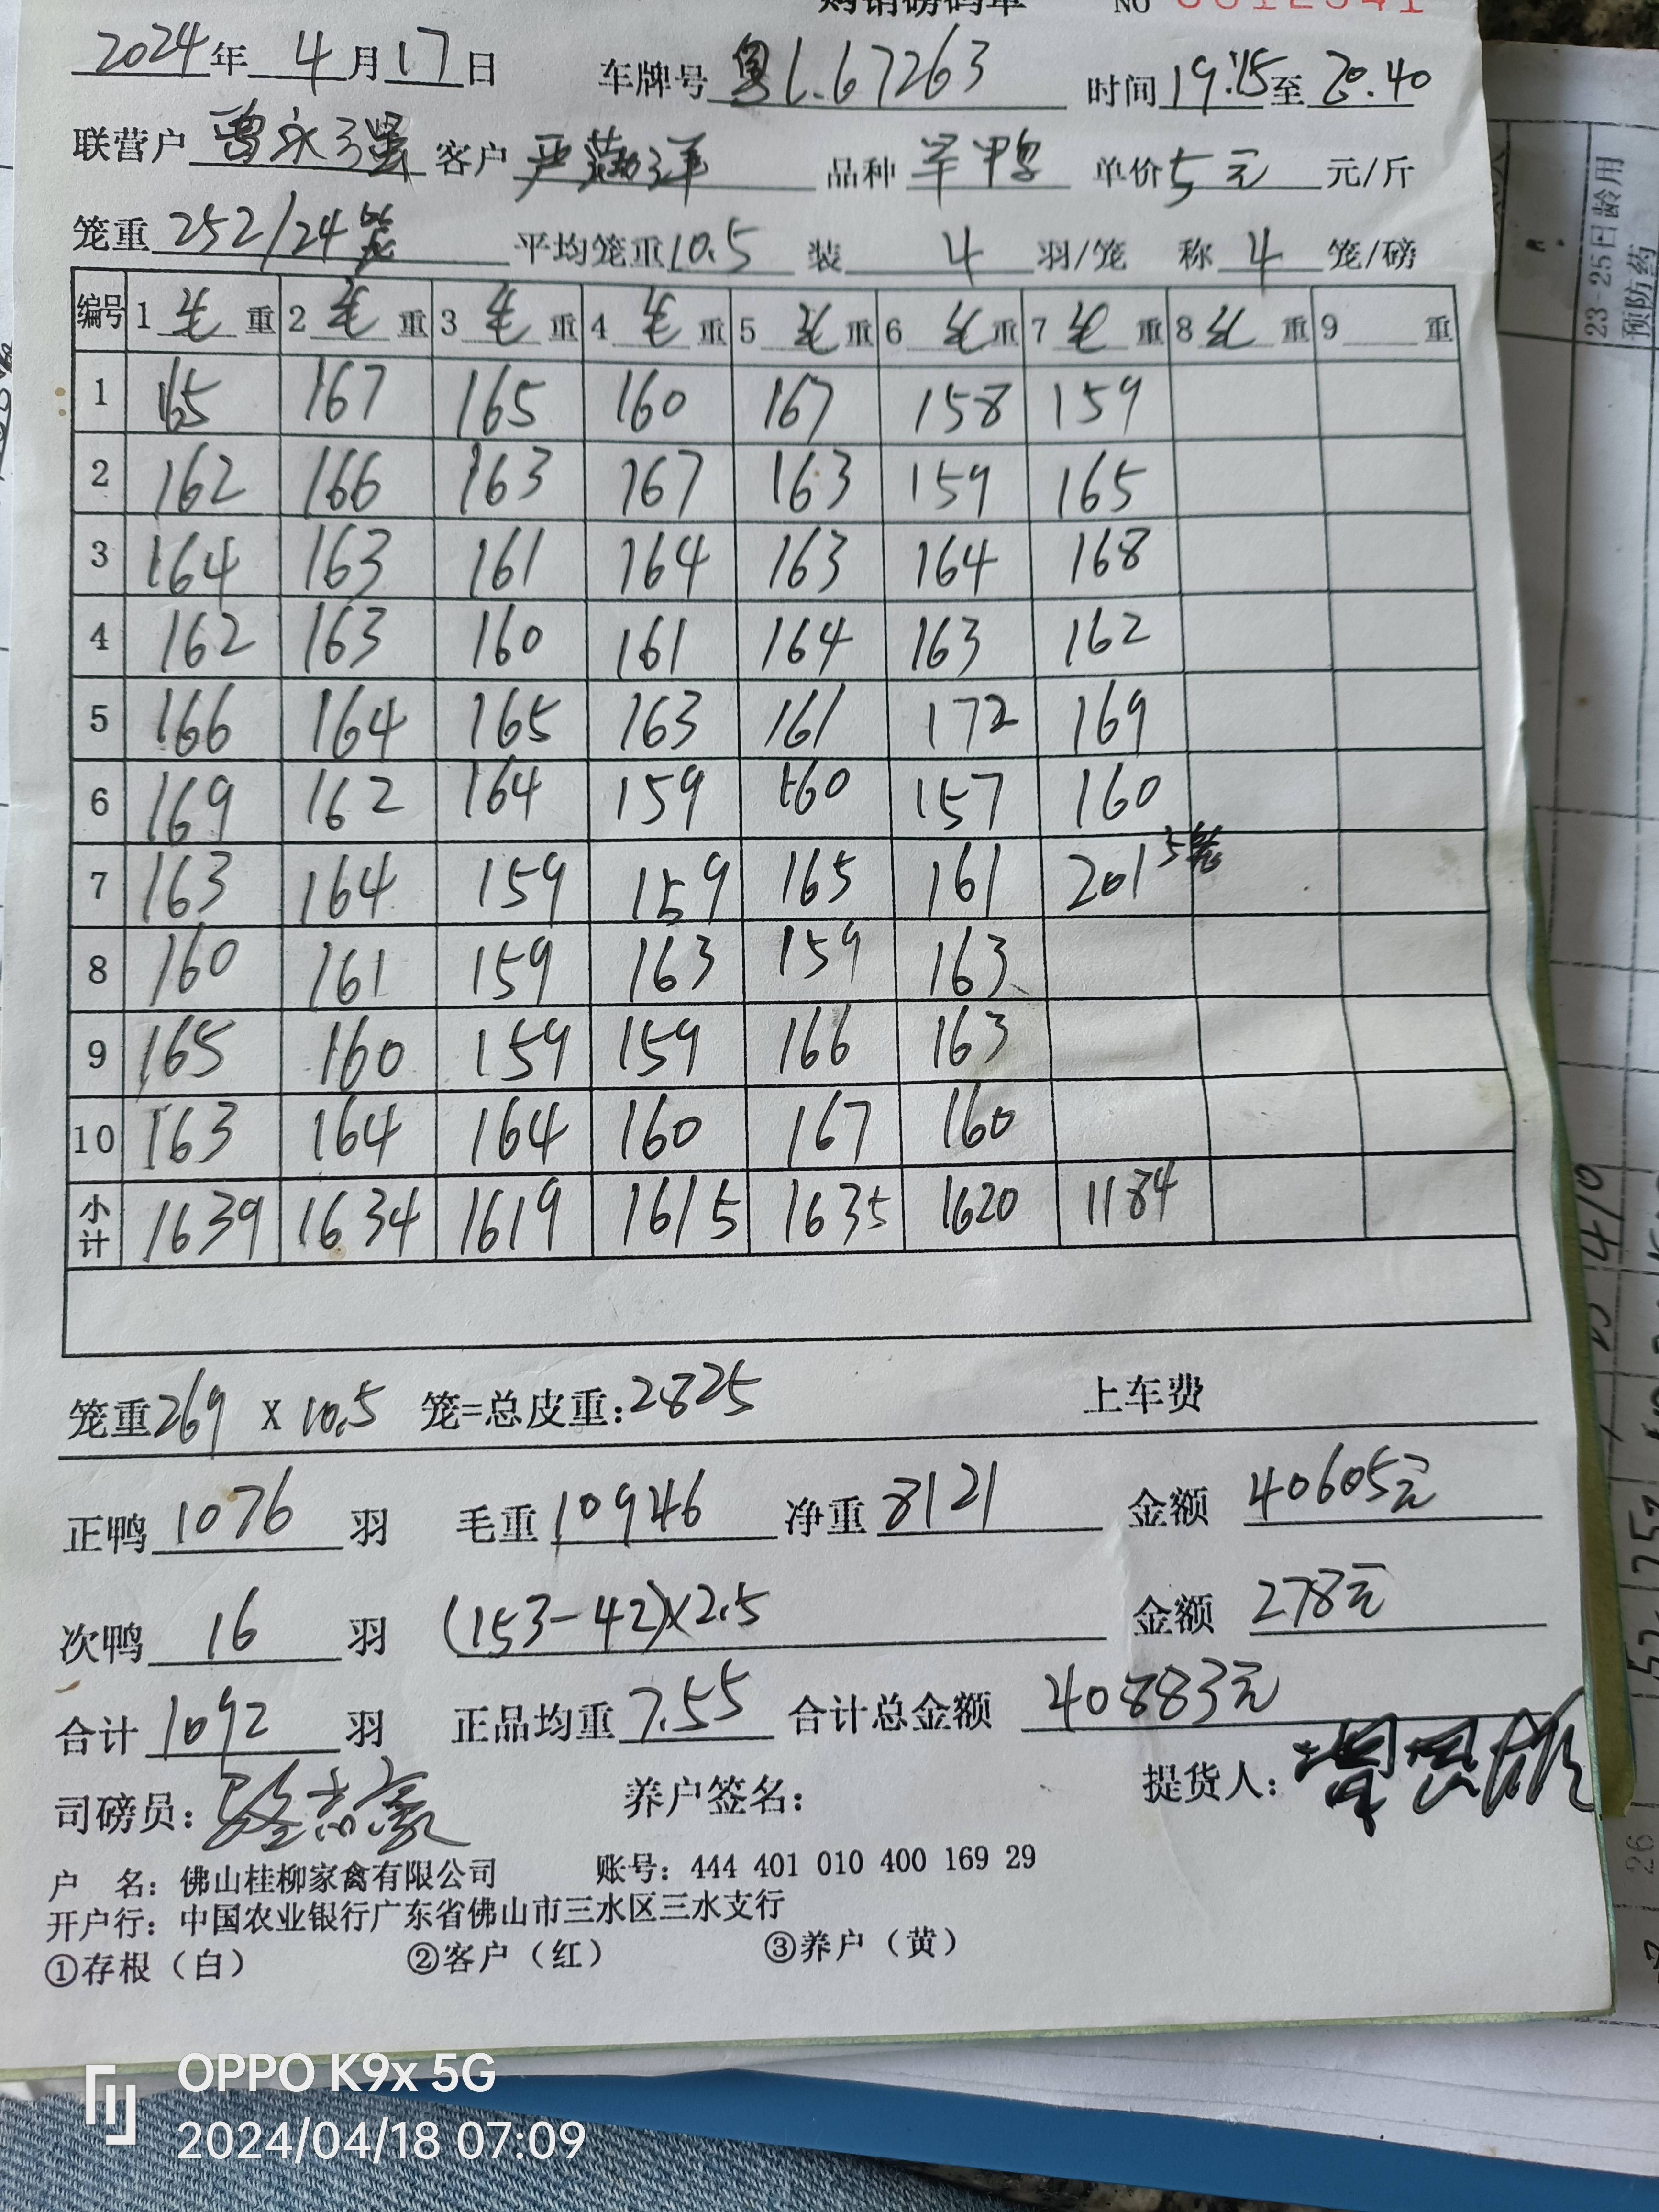 购销磅码单 NO 0012341
2024年 4月17日 车牌号 粤L.67263 时间19:15至20:40
联营户 曾永强 客户 严勋洋 品种 羊鸭 单价5元 元/斤
笼重 252/24笼 平均笼重10.5 装 4 羽/笼 称 4 笼/磅
编号 1 毛 重 2 毛 重 3 毛 重 4 毛 重 5 毛 重 6 毛 重 7 毛 重 8 毛 重 9 重
1 165 167 165 160 167 158 159
2 162 166 163 167 163 159 165
3 164 163 161 164 163 164 168
4 162 163 160 161 164 163 162
5 166 164 165 163 161 172 169
6 169 162 164 159 160 157 160
7 163 164 159 159 165 161 201 5笼
8 160 161 159 163 159 163
9 165 160 159 159 166 163
10 163 164 164 160 167 160
小计 1639 1634 1619 1615 1635 1620 1184
笼重269 X 10.5 笼=总皮重:2825 上车费
正鸭 1076 羽 毛重 10946 净重 8121 金额 40605元
次鸭 16 羽 (153-42)×2.5 金额 278元
合计 1092 羽 正品均重 7.55 合计总金额 40883元
司磅员: 养户签名: 提货人:
户 名: 佛山桂柳家禽有限公司 账号: 444 401 010 400 169 29
开户行: 中国农业银行广东省佛山市三水区三水支行
①存根（白） ②客户（红） ③养户（黄）
23-25日龄用
预防药
OPPO K9x 5G
2024/04/18 07:09